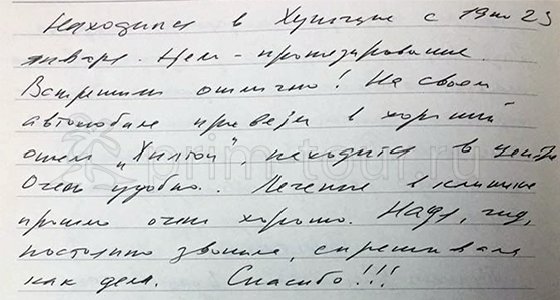 Находились в Хунчуне с 19 по 23
января. Цель - протезирование.
Встретили отлично! На своем
автомобиле привезли в хороший
отель "Хилтон", находится в центре
Очень удобно. Лечение в клинике
прошло очень хорошо. Надя, гид,
постоянно звонила, спрашивала
как дела. Спасибо!!!
prim-tour.ru